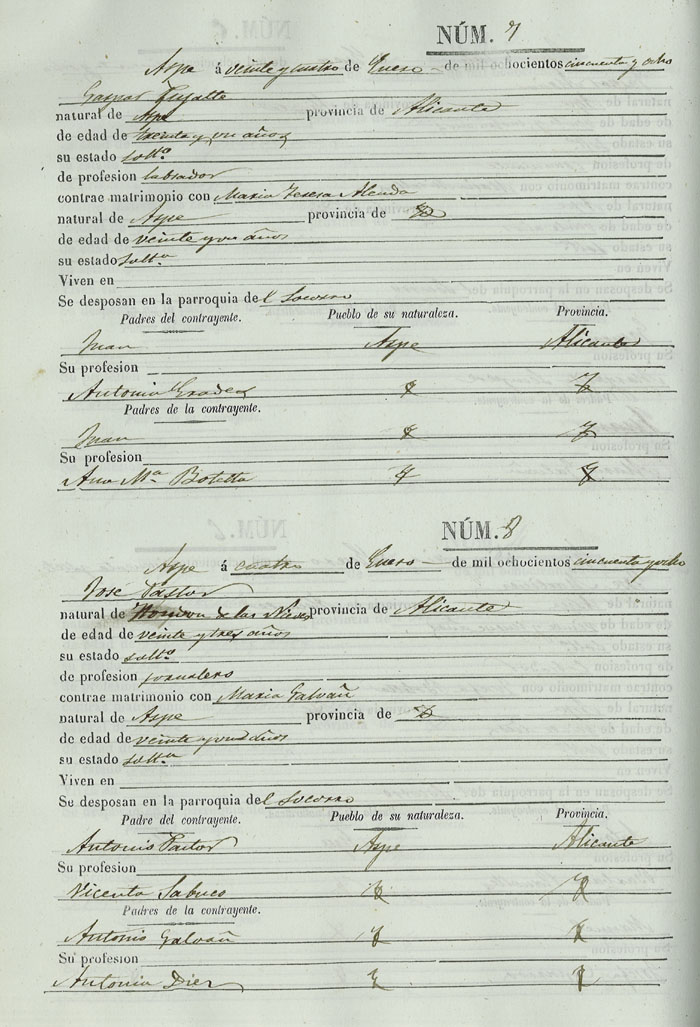 NÚM. 7
Aspe á veinte y cuatro de Enero de mil ochocientos cincuenta y ocho
Gaspar
natural de Aspe provincia de Alicante
de edad de treinta y un años
su estado soltº
de profesion labrador
contrae matrimonio con Maria Teresa Alenda
natural de Aspe provincia de
de edad de veinte y un años
su estado soltª
Viven en
Se desposan en la parroquia del Socorro
Padres del contrayente. Pueblo de su naturaleza. Provincia.
Juan Aspe Alicante
Su profesion
Antonia
Padres de la contrayente.
Juan
Su profesion
Ana Mª Botella
NÚM. 8
Aspe á cuatro de Enero de mil ochocientos cincuenta y ocho
José Pastor
natural de Hondon de las Nieves provincia de Alicante
de edad de veinte y tres años
su estado soltº
de profesion jornalero
contrae matrimonio con Maria Galvañ
natural de Aspe provincia de
de edad de veinte y un años
su estado soltª
Viven en
Se desposan en la parroquia del Socorro
Padre del contrayente. Pueblo de su naturaleza. Provincia.
Antonio Pastor Aspe Alicante
Su profesion
Vicenta Sabuco
Padres de la contrayente.
Antonio Galvañ
Su profesion
Antonia Diez